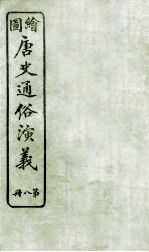 繪圖
唐史通俗演義
第八冊